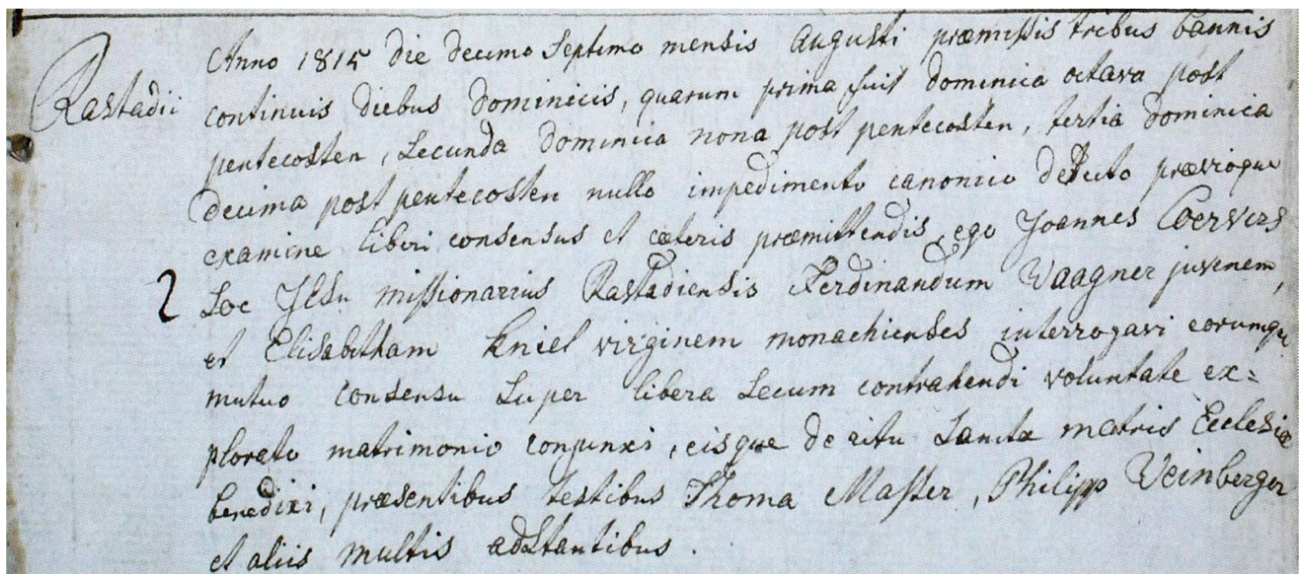 Anno 1815 die decimo septimo mensis Augusti præmissis tribus bannis
Rastadii
continuis diebus dominicis, quarum prima fuit dominica octava post
pentecosten, secunda dominica nona post pentecosten, tertia dominica
decima post pentecosten nullo impedimento canonico detecto prævioque
examine liberi consensus et cæteris præmittendis, ego Joannes Coervers
2
Soc Jesu missionarius Rastadiensis Ferdinandum Waagner juvenem,
et Elisabetham Kniel virginem monachienses interrogavi eorumque
mutuo consensu super libera secum contrahendi voluntate ex=
plorato matrimonio conjunxi, eisque de ritu sanctæ matris Ecclesiæ
benedixi, præsentibus testibus Thoma Masser, Philipp Weinberger
et aliis multis adstantibus.